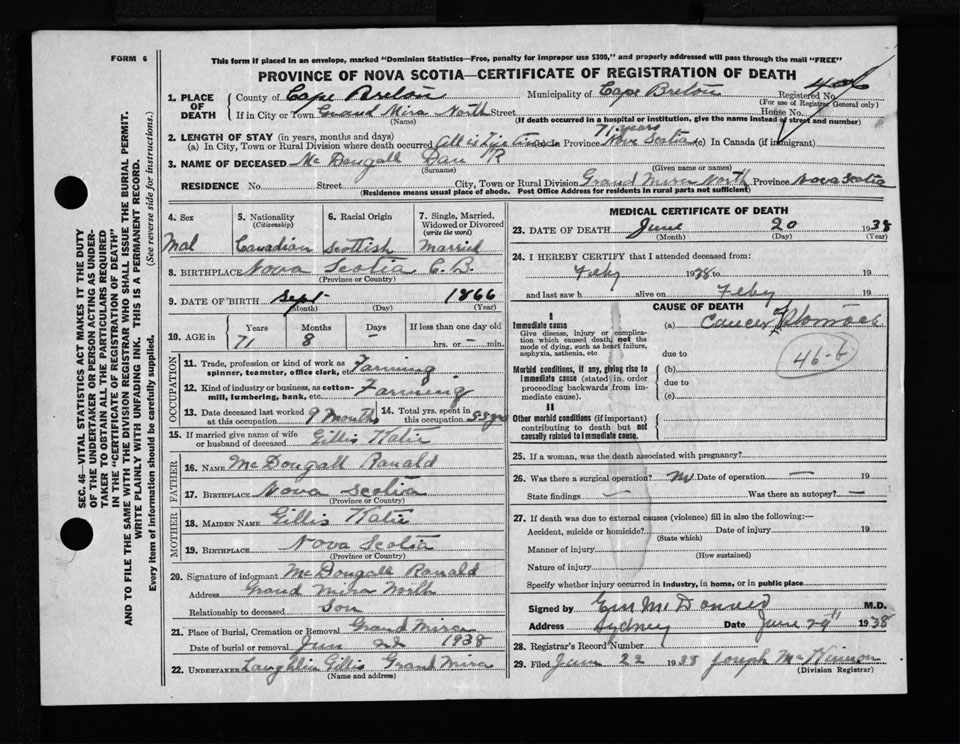 FORM 6
This form if placed in an envelope, marked "Dominion Statistics—Free, penalty for improper use $300," and properly addressed will pass through the mail "FREE"
PROVINCE OF NOVA SCOTIA—CERTIFICATE OF REGISTRATION OF DEATH
1. PLACE OF DEATH County of Cape Breton Municipality of Cape Breton Registered No.
(For use of Registrar General only)
If in City or Town Grand Mira North Street House No.
(Name) (If death occurred in a hospital or institution, give the name instead of street and number)
71 years
2. LENGTH OF STAY (in years, months and days)
(a) In City, Town or Rural Division where death occurred All is Life Time In Province Nova Scotia (c) In Canada (if immigrant)
3. NAME OF DECEASED McDougall Dan R
(Surname) (Given name or names)
RESIDENCE No. Street City, Town or Rural Division Grand Mira North Province Nova Scotia
(Residence means usual place of abode. Post Office Address for residents in rural parts not sufficient)
4. Sex 5. Nationality (Citizenship) 6. Racial Origin 7. Single, Married, Widowed or Divorced (write the word)
Mal Canadian Scottish Married
8. BIRTHPLACE Nova Scotia C.B.
(Province or Country)
9. DATE OF BIRTH Sept 1866
(Month) (Day) (Year)
10. AGE in Years Months Days If less than one day old
71 8 — hrs. or — min.
OCCUPATION
11. Trade, profession or kind of work as spinner, teamster, office clerk, etc. Farming
12. Kind of industry or business, as cotton-mill, lumbering, bank, etc. Farming
13. Date deceased last worked at this occupation 9 Months 14. Total yrs. spent in this occupation
15. If married give name of wife or husband of deceased Gillis Katie
FATHER
16. NAME McDougall Ronald
17. BIRTHPLACE Nova Scotia
(Province or Country)
MOTHER
18. MAIDEN NAME Gillis Katie
19. BIRTHPLACE Nova Scotia
(Province or Country)
20. Signature of informant McDougall Ronald
Address Grand Mira North
Relationship to deceased Son
21. Place of Burial, Cremation or Removal Grand Mira
Date of burial or removal Jun 22 1938
22. UNDERTAKER Laughlin Gillis Grand Mira
(Name and address)
MEDICAL CERTIFICATE OF DEATH
23. DATE OF DEATH June 20 1938
(Month) (Day) (Year)
24. I HEREBY CERTIFY that I attended deceased from:
Feby 1938 to 19
and last saw h alive on Feby 19
CAUSE OF DEATH
I
Immediate cause
Give disease, injury or complication which caused death, not the mode of dying, such as heart failure, asphyxia, asthenia, etc
(a) Cancer of Stomach
due to
46-b
Morbid conditions, if any, giving rise to immediate cause (stated in order proceeding backwards from immediate cause).
(b)
due to
(c)
II
Other morbid conditions (if important) contributing to death but not causally related to immediate cause.
25. If a woman, was the death associated with pregnancy?
26. Was there a surgical operation? No Date of operation — 19
State findings — Was there an autopsy? —
27. If death was due to external causes (violence) fill in also the following:—
Accident, suicide or homicide? Date of injury 19
(State which)
Manner of injury
(How sustained)
Nature of injury
Specify whether injury occurred in industry, in home, or in public place
Signed by M.D.
Address Sydney Date June 29th 1938
28. Registrar's Record Number
29. Filed June 22 1938 Joseph McKinnon
(Division Registrar)
SEC. 46—VITAL STATISTICS ACT MAKES IT THE DUTY
OF THE UNDERTAKER OR PERSON ACTING AS UNDER-
TAKER TO OBTAIN ALL THE PARTICULARS REQUIRED
IN THE "CERTIFICATE OF REGISTRATION OF DEATH"
AND TO FILE THE SAME WITH THE DIVISION REGISTRAR WHO SHALL ISSUE THE BURIAL PERMIT.
WRITE PLAINLY WITH UNFADING INK. THIS IS A PERMANENT RECORD.
Every item of information should be carefully supplied. (See reverse side for instructions.)